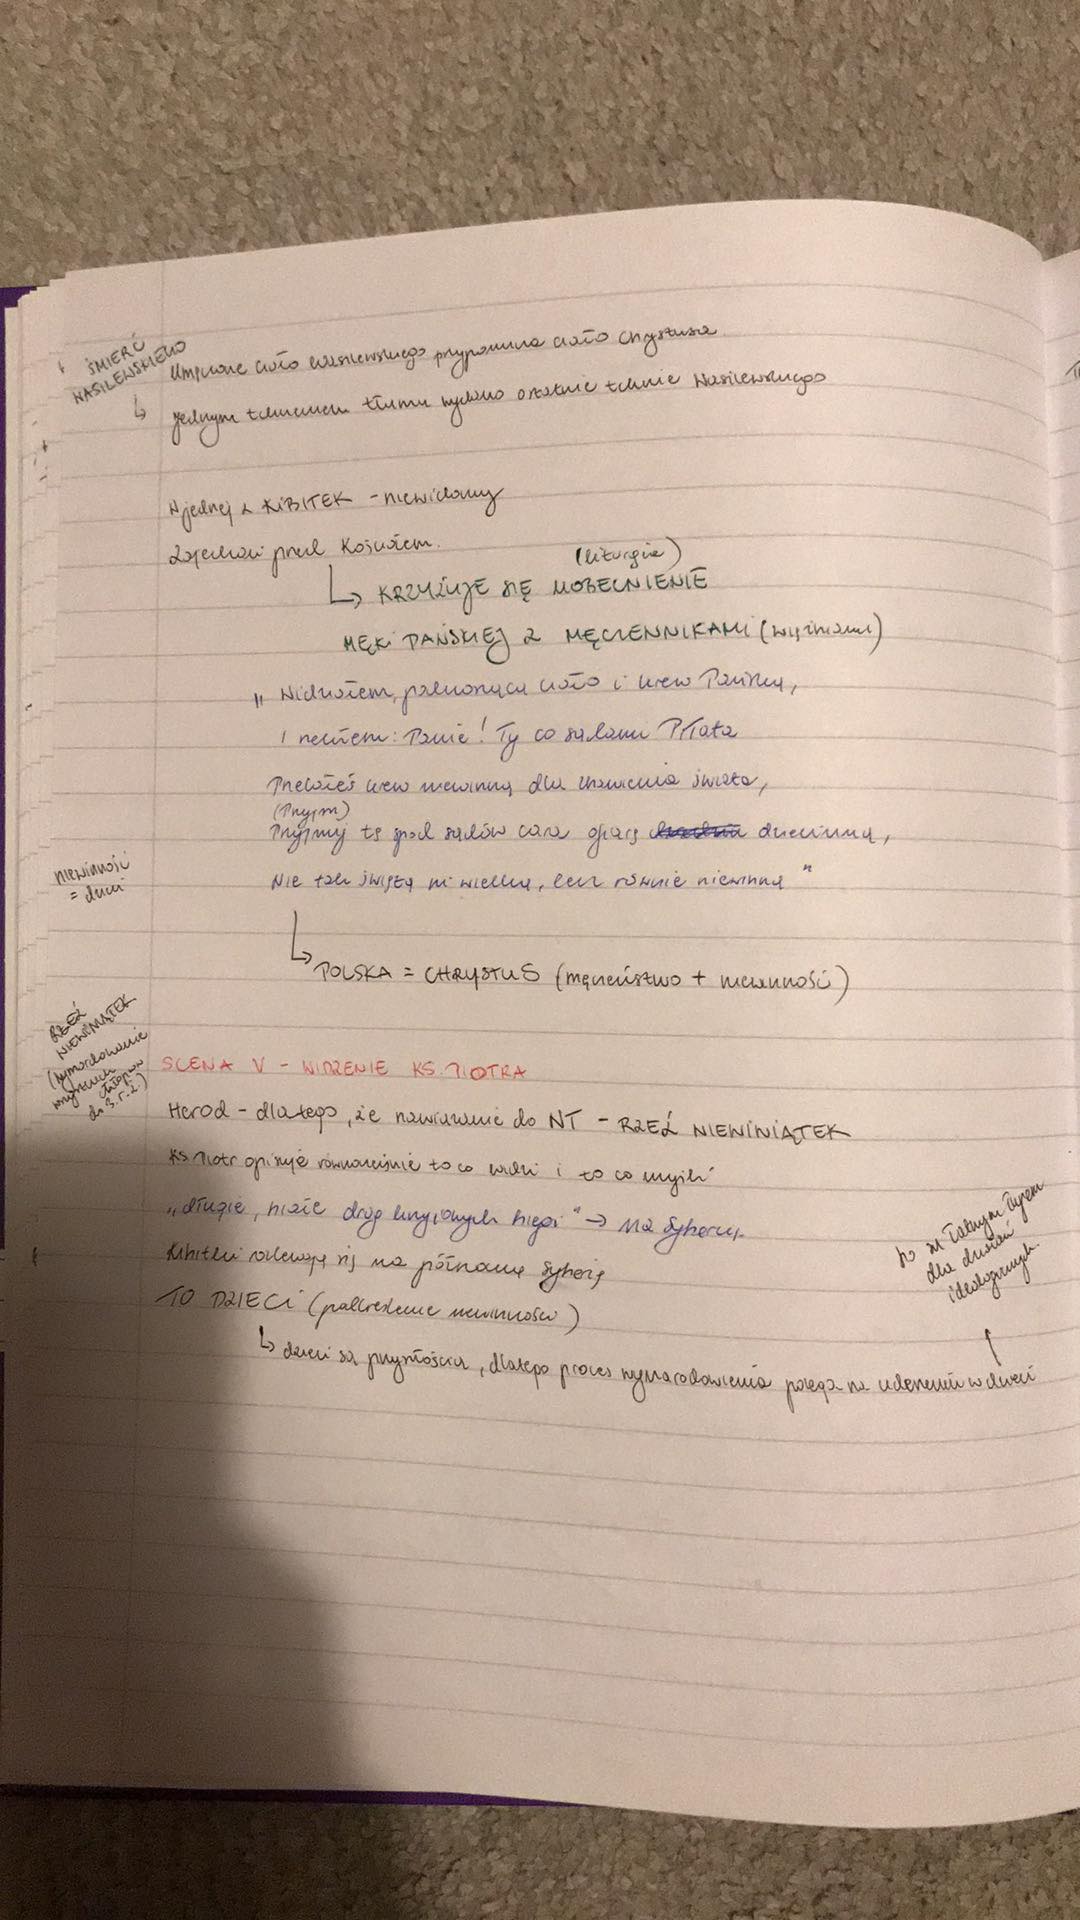 ŚMIERĆ
WASILEWSKIEGO
Umęczone ciało Wasilewskiego przypomina ciało Chrystusa
↳ jednym tchnieniem tłumu wydano ostatnie tchnie Wasilewskiego
W jednej z KIBITEK - niewidomy
Zajechał przed Kościołem.
(liturgia)
↳ KRZYŻUJE SIĘ UOBECNIENIE
MĘKI PAŃSKIEJ Z MĘCZENNIKAMI (więźniami)
„Widziałem, podnoszącą ciało i krew Pańską,
I rzekłem: Panie! Ty co sądami Piłata
Przelałeś krew niewinną dla zbawienia świata,
(Przyjm)
Przyjmij tę spod sądów cara ofiarę dziecinną,
niewinność
= dzieci
Nie tak świętą ni wielką, lecz równie niewinną"
↳ POLSKA = CHRYSTUS (męczeństwo + niewinność)
RZEŹ
NIEWINIĄTEK
(wymordowanie
wszystkich
chłopców
do 3. r. ż.)
SCENA V - WIDZENIE KS. PIOTRA
Herod - dlatego, że nawiązanie do NT - RZEŹ NIEWINIĄTEK
Ks. Piotr opisuje równocześnie to co widzi i to co myśli
„długie, białe dróg krzyżowych biegi" → na Syberię.
Kibitki rozlewają się na północną Syberię
TO DZIECI (podkreślenie niewinności)
↳ dzieci są przyszłością, dlatego proces wynarodowienia polega na uderzeniu w dzieci
bo są łatwym łupem
dla działań
ideologicznych.